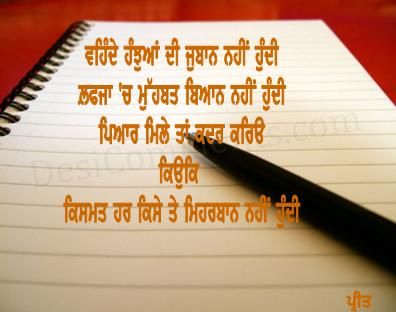 ਵਹਿੰਦੇ ਹੰਝੂਆਂ ਦੀ ਜੁਬਾਨ ਨਹੀਂ ਹੁੰਦੀ
ਲ਼ਫਜਾ 'ਚ ਮੁੱਹਬਤ ਬਿਆਨ ਨਹੀਂ ਹੁੰਦੀ
ਪਿਆਰ ਮਿਲੇ ਤਾਂ ਕਦਰ ਕਰਿਓ
ਕਿਉਕਿ
ਕਿਸਮਤ ਹਰ ਕਿਸੇ ਤੇ ਮਿਹਰਬਾਨ ਨਹੀਂ ਹੁੰਦੀ
ਪ੍ਰੀਤ